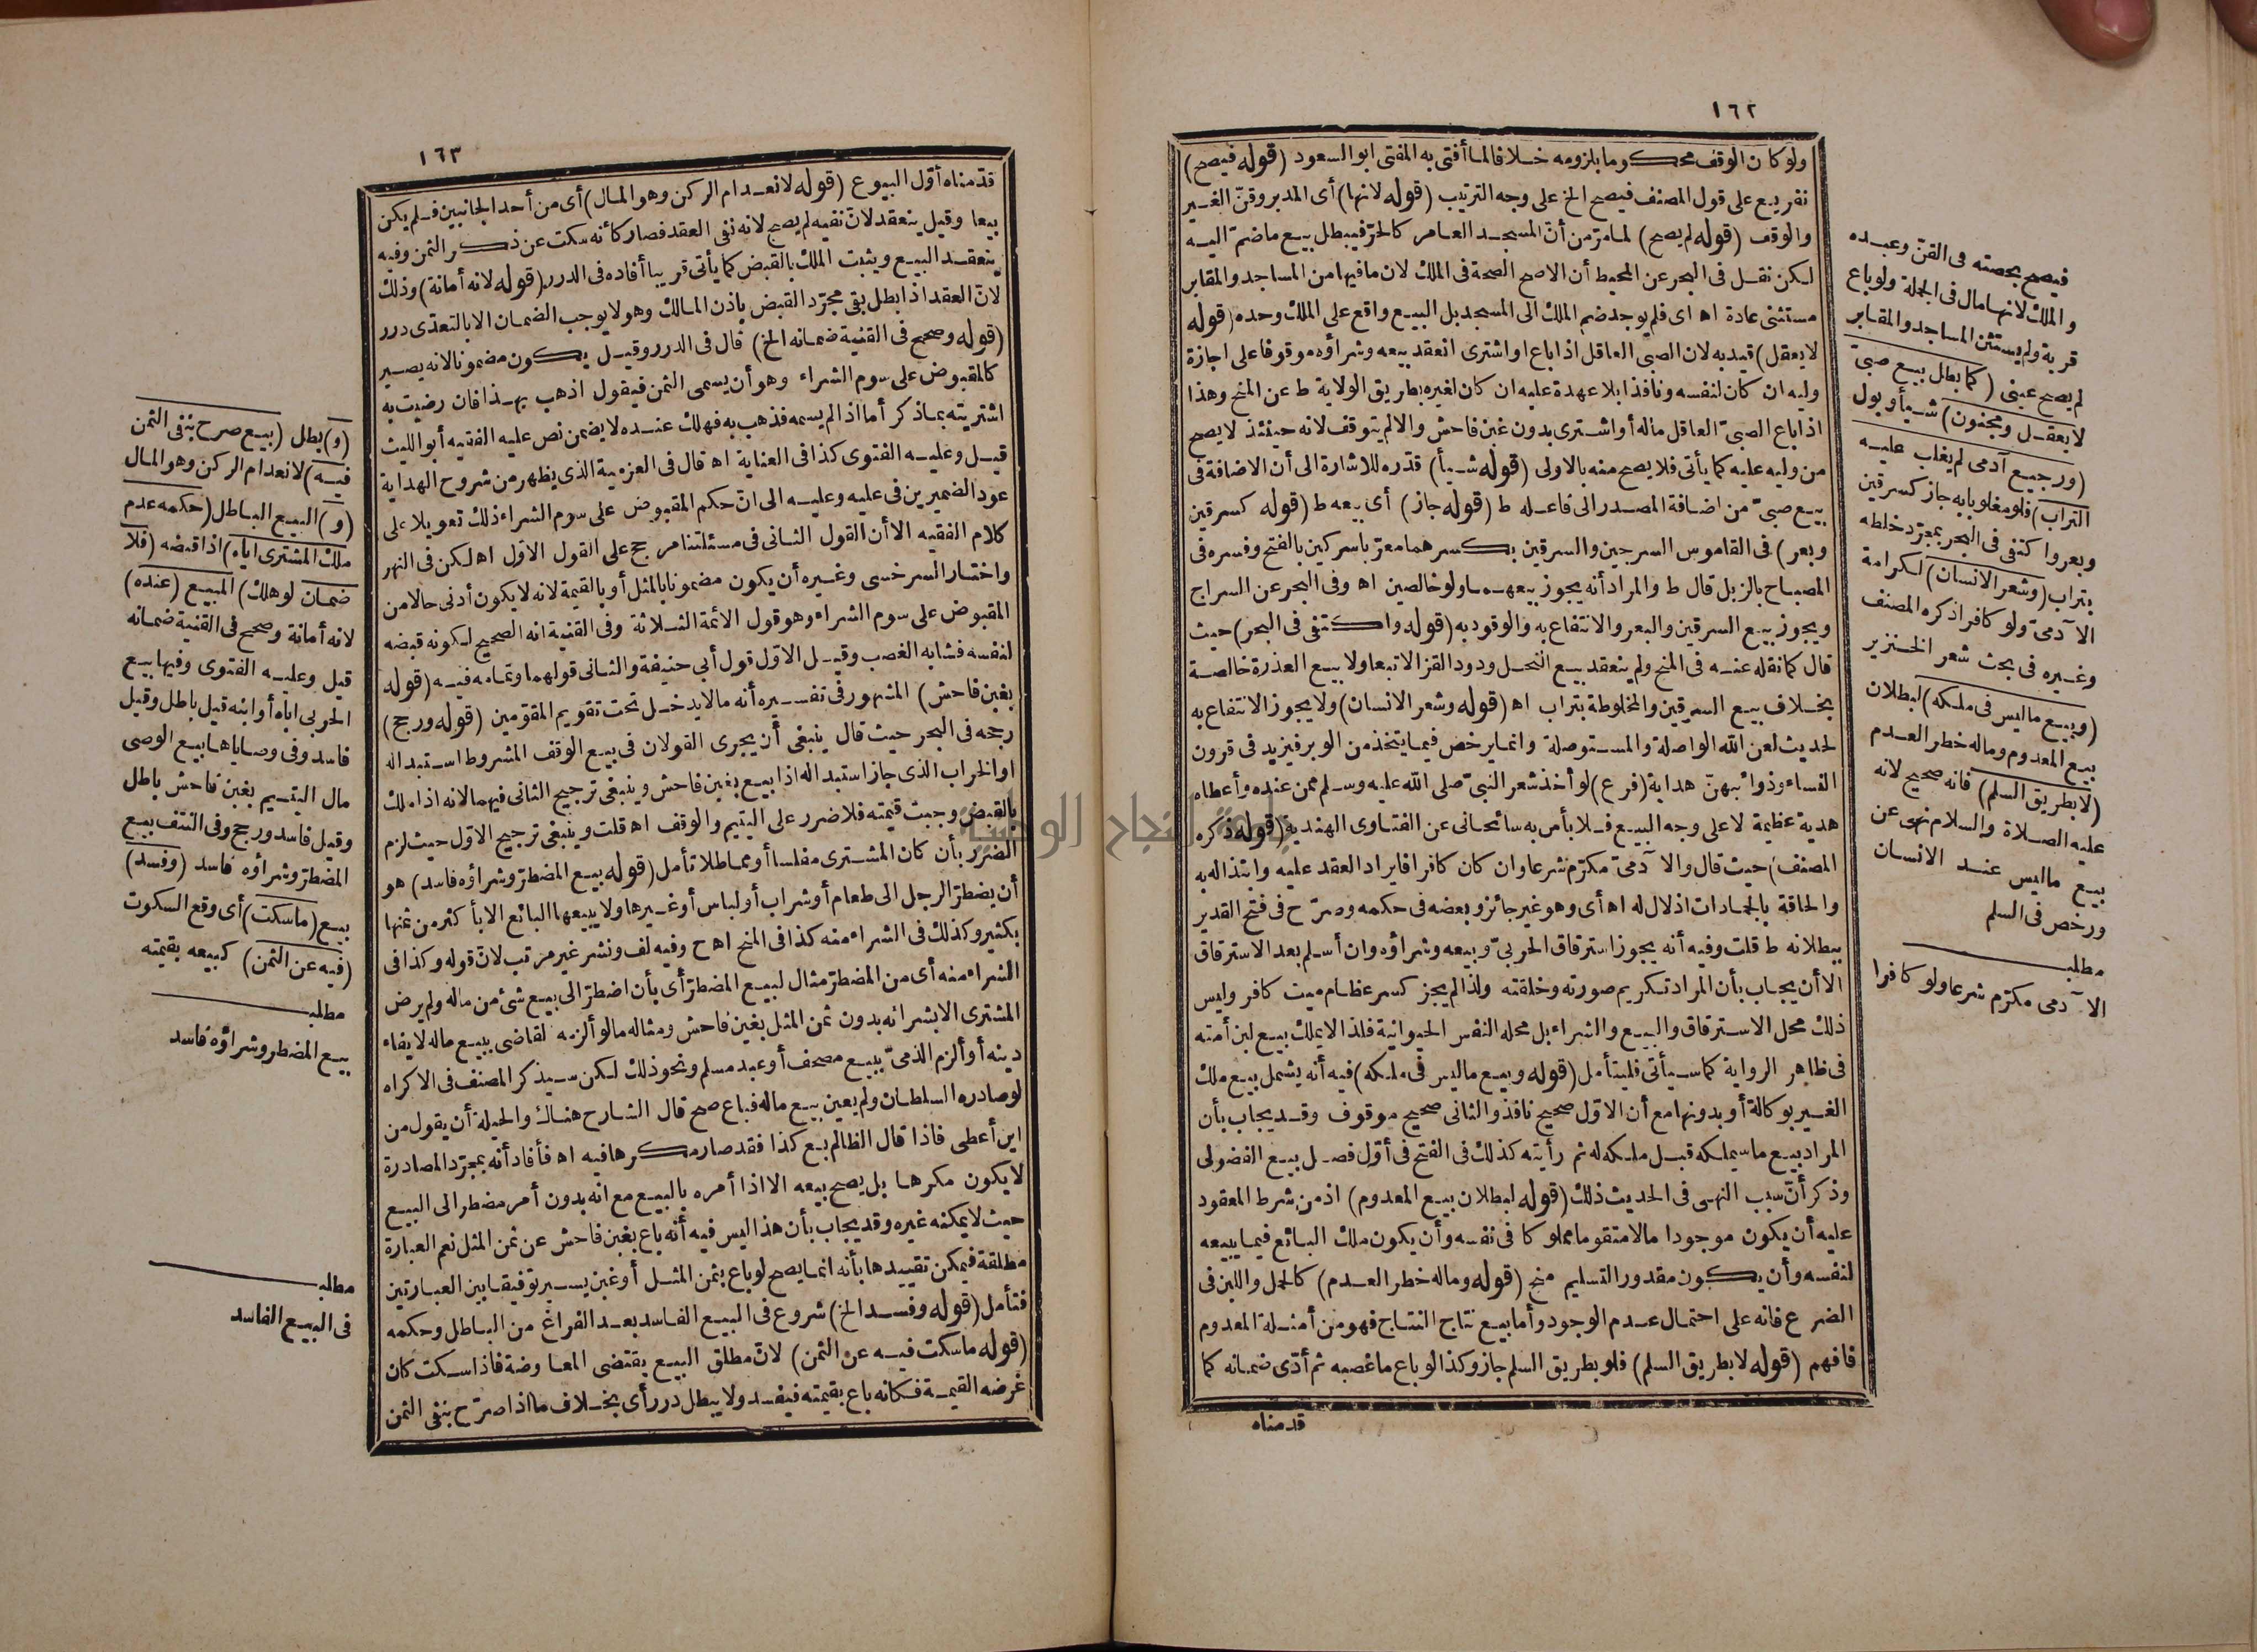 ١٦٢
ولو كان الوقف محكوما بلزومه خلافا لما أفتى به المفتى ابو السعود (قوله فيصح)
تفريع على قول المصنف فيصح الخ على وجه الترتيب (قوله لانها) أى المدبر وقنّ الغير
والوقف (قوله لم يصح) لما مرّ من أنّ المسجد العامر كالحرّ فيبطل بيع ما ضمّ اليه
لكن نقل فى البحر عن المحيط أن الاصح الصحة فى الملك لان ما فيها من المساجد والمقابر
مستثنى عادة اه اى فلم يوجد ضم الملك الى المسجد بل البيع واقع على الملك وحده (قوله
لا يعقل) قيد به لان الصبى العاقل اذا باع او اشترى انعقد بيعه وشراؤه موقوفا على اجازة
وليه ان كان لنفسه ونافذا بلا عهدة عليه ان كان لغيره بطريق الولاية ط عن المنح وهذا
اذا باع الصبىّ العاقل ماله أو اشترى بدون غبن فاحش والا لم يتوقف لانه حينئذ لا يصح
من وليه عليه كما يأتى فلا يصح منه بالاولى (قوله شيأ) قدّره للاشارة الى أن الاضافة فى
بيع صبىّ من اضافة المصدر الى فاعله ط (قوله جاز) أى بيعه ط (قوله كسرقين
وبعر) فى القاموس السرجين والسرقين بكسرهما معرّبا سركين بالفتح وفسره فى
المصباح بالزبل قال ط والمراد أنه يجوز بيعهما ولو خالصين اه وفى البحر عن السراج
ويجوز بيع السرقين والبعر والانتفاع به والوقود به (قوله واكتفى فى البحر) حيث
قال كما نقله عنه فى المنح ولم ينعقد بيع النحل ودود القز الا تبعا ولا بيع العذرة خالصة
بخلاف بيع السرقين والمخلوطة بتراب اه (قوله وشعر الانسان) ولا يجوز الانتفاع به
لحديث لعن الله الواصلة والمستوصلة وانما يرخص فيما يتخذ من الوبر فيزيد فى قرون
النساء وذوائبهنّ هداية (فرع) لو أخذ شعر النبىّ صلى الله عليه وسلم ممن عنده وأعطاه
هدية عظيمة لا على وجه البيع فلا بأس به سائحانى عن الفتاوى الهندية (قوله ذكره
المصنف) حيث قال والا آدمىّ مكرّم شرعا وان كان كافرا فايراد العقد عليه وابتذاله به
والحاقة بالجمادات اذلال له اه أى وهو غير جائز وبعضه فى حكمه وصرّح فى فتح القدير
ببطلانه ط قلت وفيه أنه يجوز استرقاق الحربىّ وبيعه وشراؤه وان أسلم بعد الاسترقاق
الا أن يجاب بأن المراد تكريم صورته وخلقته ولذا لم يجز كسر عظام ميت كافر وليس
ذلك محل الاسترقاق والبيع والشراء بل محله النفس الحيوانية فلذا لا يملك بيع لبن أمته
فى ظاهر الرواية كما سيأتى فليتأمل (قوله وبيع ما ليس فى ملكه) فيه أنه يشمل بيع ملك
الغير بوكالة أو بدونها مع أن الاوّل صحيح نافذ والثانى صحيح موقوف وقد يجاب بأن
المراد بيع ما سيملكه قبل ملكه له ثم رأيته كذلك فى الفتح فى أوّل فصل بيع الفضولى
وذكر أنّ سبب النهى فى الحديث ذلك (قوله لبطلان بيع المعدوم) اذ من شرط المعقود
عليه أن يكون موجودا مالا متقوما مملوكا فى نفسه وأن يكون ملك البائع فيما يبيعه
لنفسه وأن يكون مقدور التسليم منح (قوله وماله خطر العدم) كالحمل واللبن فى
الضرع فانه على احتمال عدم الوجود وأما بيع نتاج النتاج فهو من أمثلة المعدوم
فافهم (قوله لا بطريق السلم) فلو بطريق السلم جاز وكذا لو باع ما غصبه ثم أدّى ضمانه كما
قدمناه
فيصح بحصته فى القنّ وعبده
والملك لانها مال فى الجملة ولو باع
قرية ولم يستثن المساجد والمقابر
لم يصح عينى (كما بطل بيع صبىّ
لا يعقل ومجنون) شيأ وبول
(ورجيع آدمى لم يغلب عليه
التراب) فلو مغلوبا به جاز كسرقين
وبعر واكتفى فى البحر بمجرّد خلطه
بتراب (وشعر الانسان) لكرامة
الآدمىّ ولو كافرا ذكره المصنف
وغيره فى بحث شعر الخنزير
(وبيع ما ليس فى ملكه) لبطلان
بيع المعدوم وماله خطر العدم
(لا بطريق السلم) فانه صحيح لانه
عليه الصلاة والسلام نهى عن
بيع ما ليس عند الانسان
ورخص فى السلم
مطلب
الآدمى مكرّم شرعا ولو كافرا
١٦٣
قدّمناه أوّل البيوع (قوله لانعدام الركن وهو المال) أى من أحد الجانبين فلم يكن
بيعا وقيل ينعقد لانّ نفيه لم يصح لانه نفى العقد فصار كأنه سكت عن ذكر الثمن وفيه
ينعقد البيع ويثبت الملك بالقبض كما يأتى قريبا أفاده فى الدرر (قوله لانه أمانة) وذلك
لانّ العقد اذا بطل بقى مجرّد القبض باذن المالك وهو لا يوجب الضمان الا بالتعدّى درر
(قوله وصحح فى القنية ضمانه الخ) قال فى الدرر وقيل يكون مضمونا لانه يصير
كالمقبوض على سوم الشراء وهو أن يسمى الثمن فيقول اذهب بهذا فان رضيت به
اشتريته بما ذكر أما اذا لم يسمه فذهب به فهلك عنده لا يضمن نص عليه الفقيه أبو الليث
قيل وعليه الفتوى كذا فى العناية اه قال فى العزمية الذى يظهر من شروح الهداية
عود الضميرين فى عليه وعليه الى انّ حكم المقبوض على سوم الشراء ذلك تعويلا على
كلام الفقيه الا أن القول الثانى فى مسئلتنا مرجح على القول الاوّل اه لكن فى النهر
واختار السرخسى وغيره أن يكون مضمونا بالمثل أو بالقيمة لانه لا يكون أدنى حالا من
المقبوض على سوم الشراء وهو قول الائمة الثلاثة وفى القنية انه الصحيح لكونه قبضه
لنفسه فشابه الغصب وقيل الاوّل قول أبى حنيفة والثانى قولهما وتمامه فيه (قوله
بغبن فاحش) المشهور فى تفسيره أنه ما لا يدخل تحت تقويم المقوّمين (قوله ورجح)
رجحه فى البحر حيث قال ينبغى أن يجرى القولان فى بيع الوقف المشروط استبداله
او الخراب الذى جاز استبداله اذا بيع بغبن فاحش وينبغى ترجيح الثانى فيهما لانه اذا ملك
بالقبض وجبت قيمته فلا ضرر على اليتيم والوقف اه قلت وينبغى ترجيح الاوّل حيث لزم
الضرر بأن كان المشترى مفلسا أو مماطلا تأمل (قوله بيع المضطرّ وشراؤه فاسد) هو
أن يضطرّ الرجل الى طعام أو شراب أو لباس أو غيرها ولا يبيعها البائع الا بأكثر من ثمنها
بكثير وكذلك فى الشراء منه كذا فى المنح اه ح وفيه لف ونشر غير مرتب لانّ قوله وكذا فى
الشراء منه أى من المضطرّ مثال لبيع المضطرّ أى بأن اضطرّ الى بيع شئ من ماله ولم يرض
المشترى الا بشرائه بدون ثمن المثل بغبن فاحش ومثاله ما لو ألزمه القاضى ببيع ماله لايفاء
دينه أو ألزم الذمىّ ببيع مصحف أو عبد مسلم ونحو ذلك لكن سيذكر المصنف فى الاكراه
لو صادره السلطان ولم يعين بيع ماله فباع صح قال الشارح هناك والحيلة أن يقول من
اين أعطى فاذا قال الظالم بع كذا فقد صار مكرها فيه اه فأفاد أنه بمجرّد المصادرة
لا يكون مكرها بل يصح بيعه الا اذا أمره بالبيع مع انه بدون أمر مضطر الى البيع
حيث لا يمكنه غيره وقد يجاب بأن هذا ليس فيه أنه باع بغبن فاحش عن ثمن المثل نعم العبارة
مطلقة فيمكن تقييدها بأنه انما يصح لو باع بثمن المثل أو غبن يسير توفيقا بين العبارتين
فتأمل (قوله وفسد الخ) شروع فى البيع الفاسد بعد الفراغ من الباطل وحكمه
(قوله ما سكت فيه عن الثمن) لانّ مطلق البيع يقتضى المعاوضة فاذا سكت كان
غرضه القيمة فكانه باع بقيمته فيفسد ولا يبطل درر أى بخلاف ما اذا صرّح بنفى الثمن
(و) بطل (بيع صرح بنفى الثمن
فيه) لانعدام الركن وهو المال
(و) البيع الباطل (حكمه عدم
ملك المشترى اياه) اذا قبضه (فلا
ضمان لو هلك) المبيع (عنده)
لانه أمانة وصحح فى القنية ضمانه
قيل وعليه الفتوى وفيها بيع
الحربى اباه أو ابنه قيل باطل وقيل
فاسد وفى وصاياها بيع الوصى
مال اليتيم بغبن فاحش باطل
وقيل فاسد ورجح وفى النتف بيع
المضطرّ وشراؤه فاسد (وفسد)
بيع (ما سكت) أى وقع السكوت
(فيه عن الثمن) كبيعه بقيمته
مطلب
بيع المضطر وشراؤه فاسد
مطلب
فى البيع الفاسد